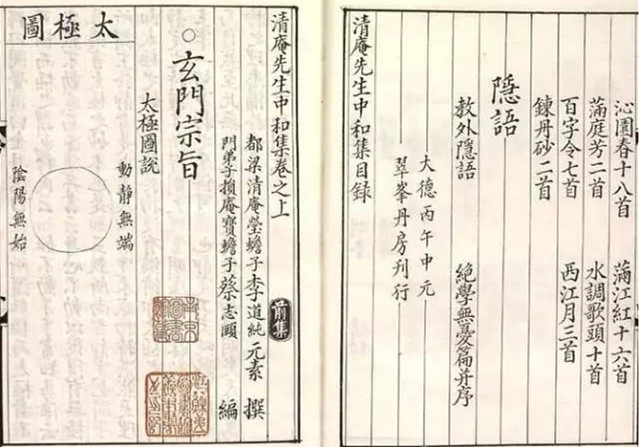 沁園春十八首　滿江紅十六首
滿庭芳二首　水調歌頭十首
百字令七首　西江月三首
鍊丹砂二首
隱語
教外隱語　絕學無憂篇并序
大德丙午中元
翠峯丹房刊行
清庵先生中和集目録
清庵先生中和集卷之上　前集
都梁清庵瑩蟾子李道純元素　撰
門弟子損庵寶蟾子蔡志頤　編
○玄門宗旨
太極圖說
太極圖
動靜無端
陰陽無始